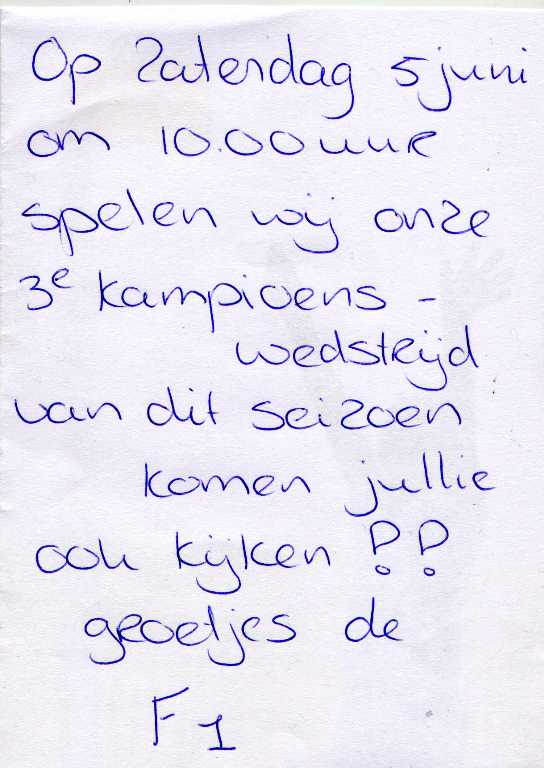 Op Zaterdag 5 juni
om 10.00 uur
spelen wij onze
3e kampioens -
wedstrijd
van dit seizoen
komen jullie
ook kijken ??
groetjes de
F1